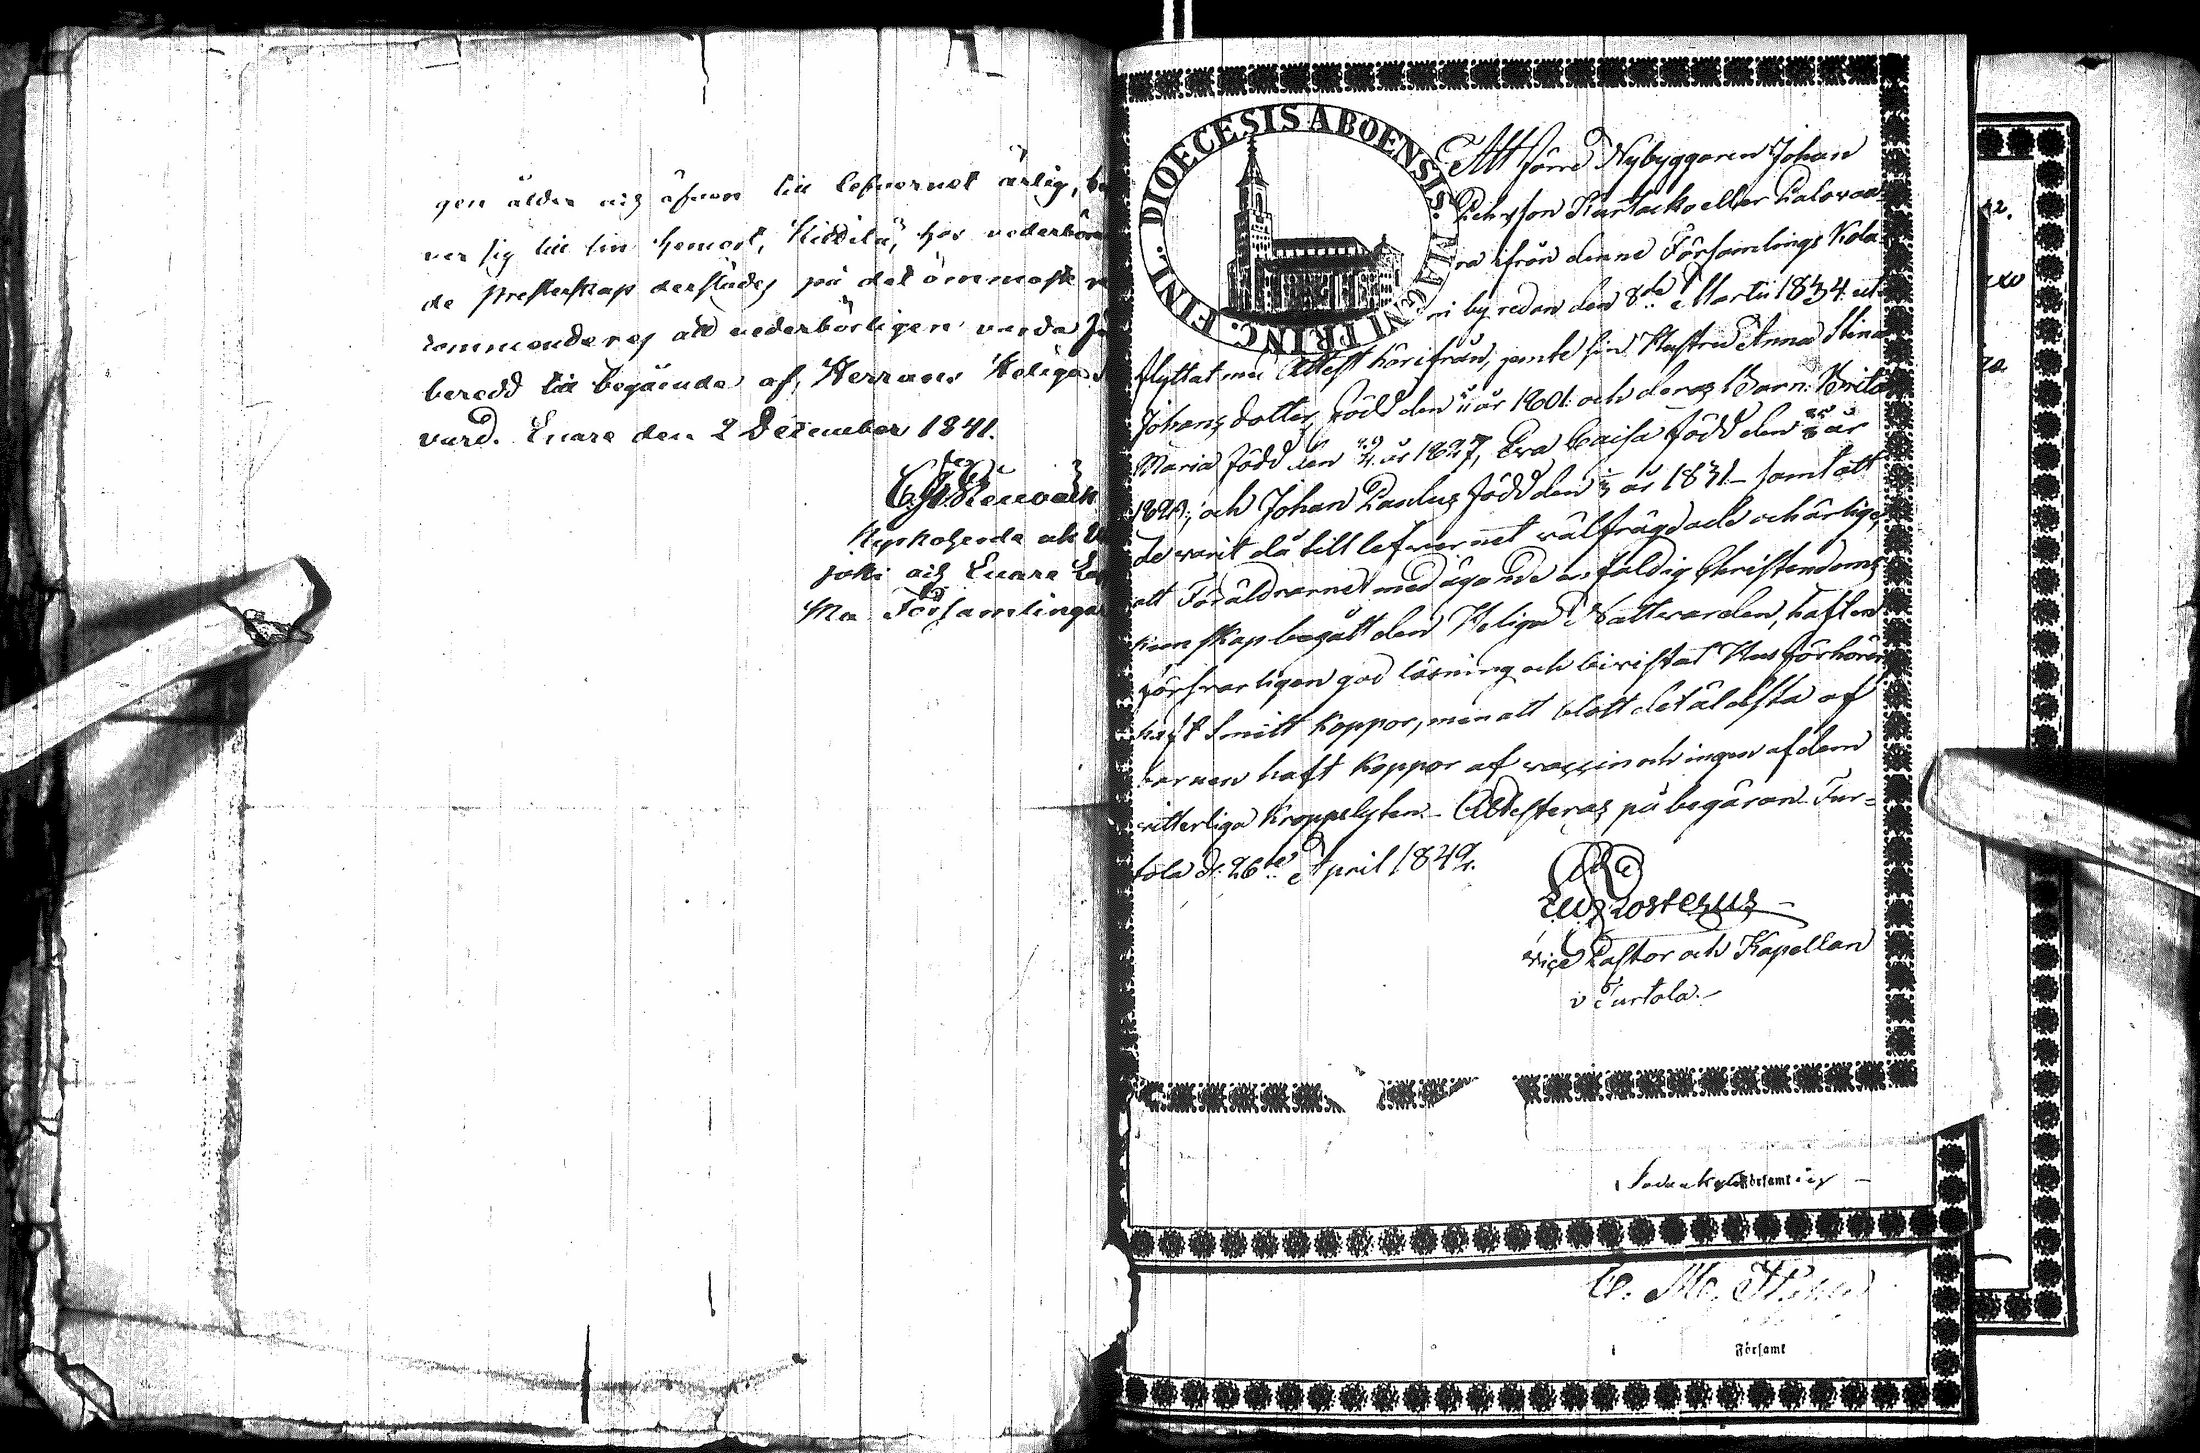 gen ålder och äfven till lefvernet ärlig,
ver sig till sin hemort, Kittilä, hos vederbör
de Presterskap derstädes på det ömmaste re
commenderas att vederbörligen varda
beredd till begående af Herrans Heliga
vard. Enare den 2 December 1841.
Kyrkoherde uti U
joki och Enare Lap
Ma Församlingar
DIOECESIS ABOENSIS. MAGNI PRINC. FINL.
Att förre Nybyggaren Johan
Pehrsson eller Palovaa
ra ifrån denne Församlings Kola
ri by redan den 8de Martii 1834 ut
flyttat med Attest härifrån, jemte sin Hustru Anna Stina
Johansdotter, född den år 1801 och deras Barn: Brita
Maria född den år 1827, Eva Caisa född den år
och Johan Paulus född den år 1831 – samt att
de varit då till lefvernet välfrägdade och ärlige,
att Föräldrarne med ägande enfaldig Christendoms
kunskap begått den Heliga Nattvarden, haft en
försvarligen god läsning och bivistat Husförhören
haft Smitt koppor, men att blott det äldsta af
barnen haft koppor af vaccin och ingen af dem
vitterliga kroppslyten. – Attesteras på begäran. Tur=
tola d. 26de April 1842.
vice Pastor och Kapellan
i Turtola. –
i Församling –
i Församl